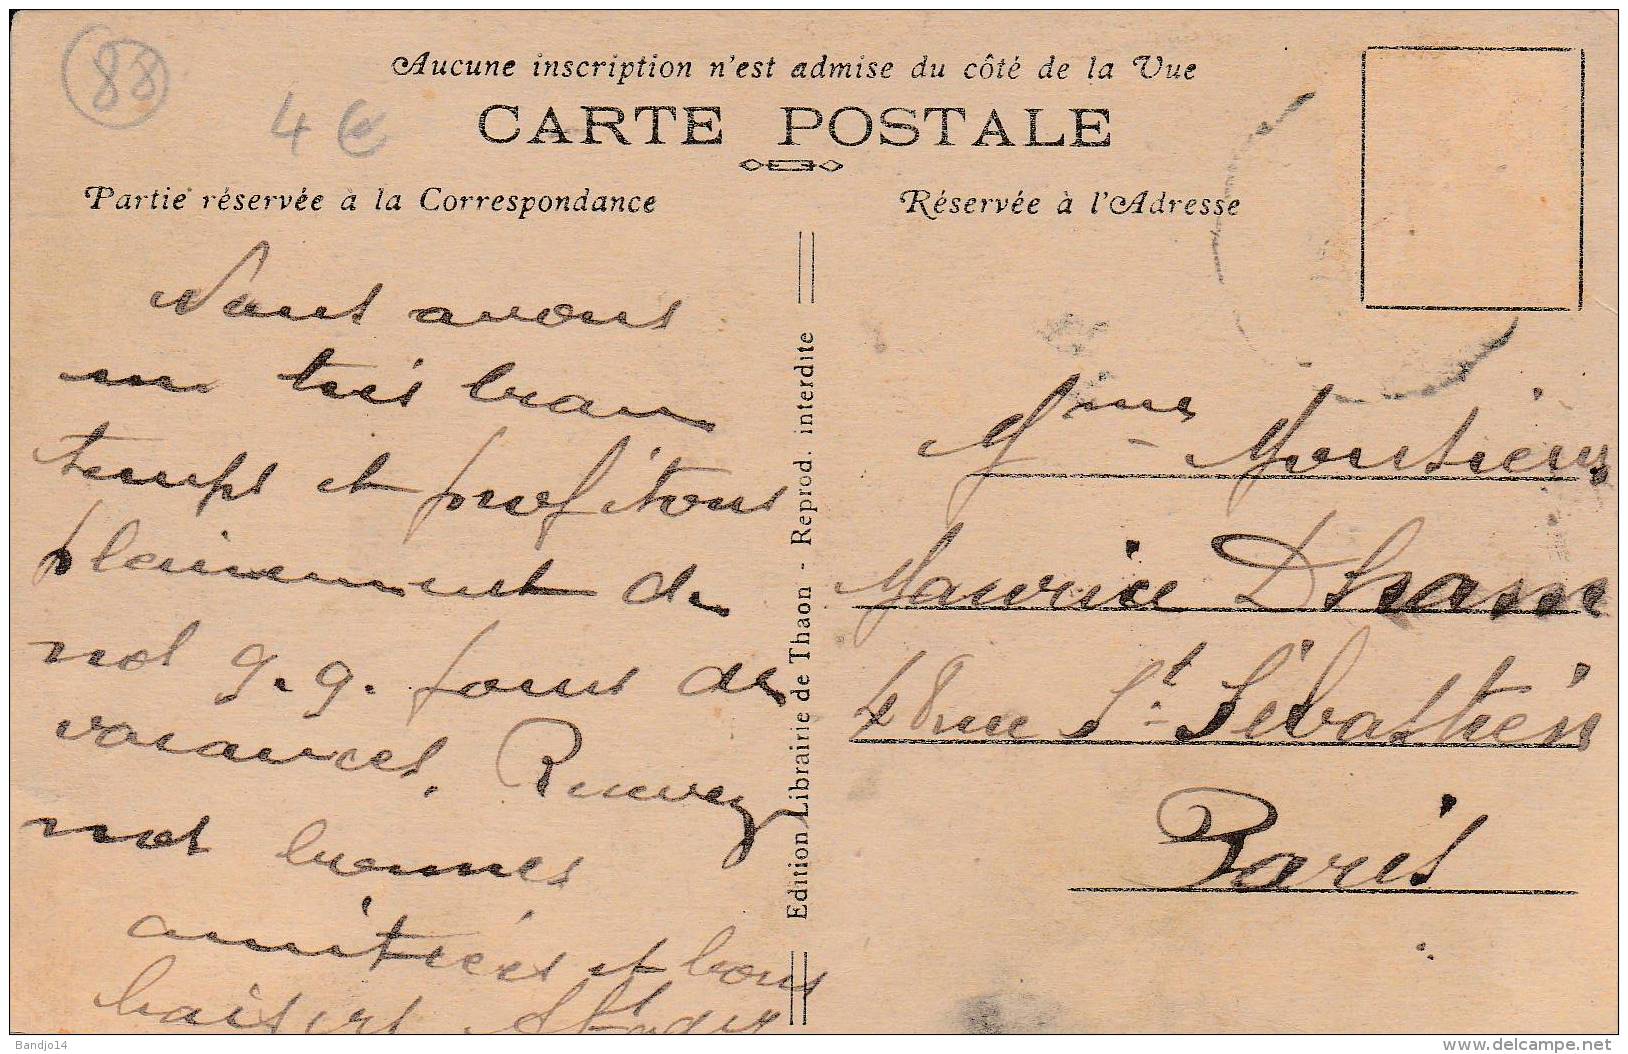 88
4 €
Aucune inscription n'est admise du côté de la Vue
CARTE POSTALE
Partie réservée à la Correspondance
Réservée à l'Adresse
Nous avons
un très beau
temps et profitons
pleinement de
nos q.q. jours de
vacances. Recevez
nos bonnes
amitiés et bons
baisers
Edition Librairie de Thaon - Reprod. interdite
Mme
Maurice
48 rue St. Sébastien
Paris
Bandjo14
www.delcampe.net